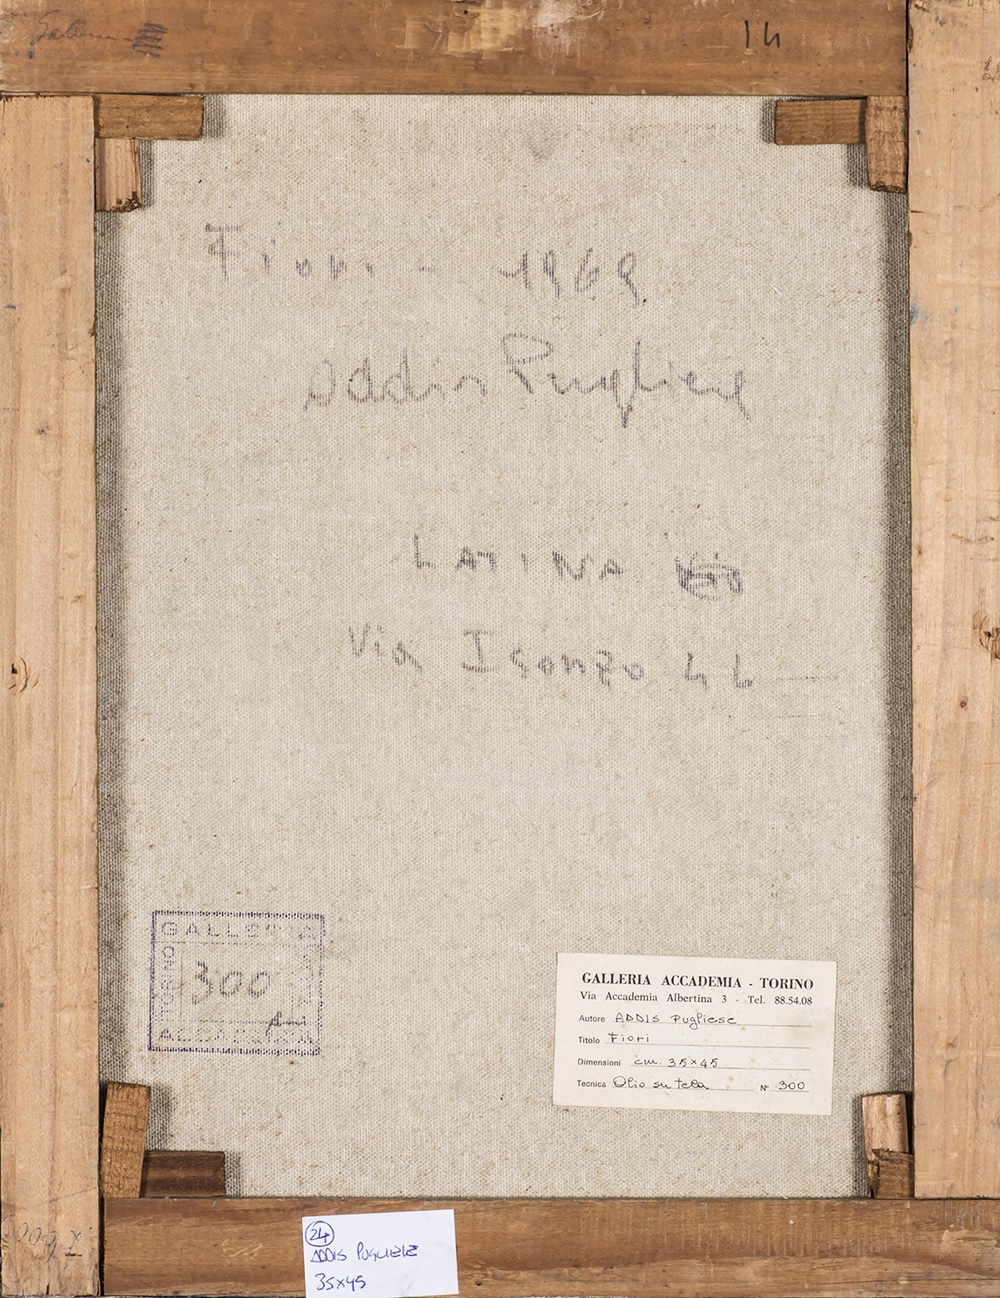 14
Fiori - 1969
Addis Pugliese
LATINA
Via Isonzo 44
GALLERIA
TORINO
300
ACCADEMIA
GALLERIA ACCADEMIA - TORINO
Via Accademia Albertina 3 - Tel. 88.54.08
Autore ADDIS Pugliese
Titolo Fiori
Dimensioni cm. 35×45
Tecnica Olio su tela N° 300
24
ADDIS PUGLIESE
35×45